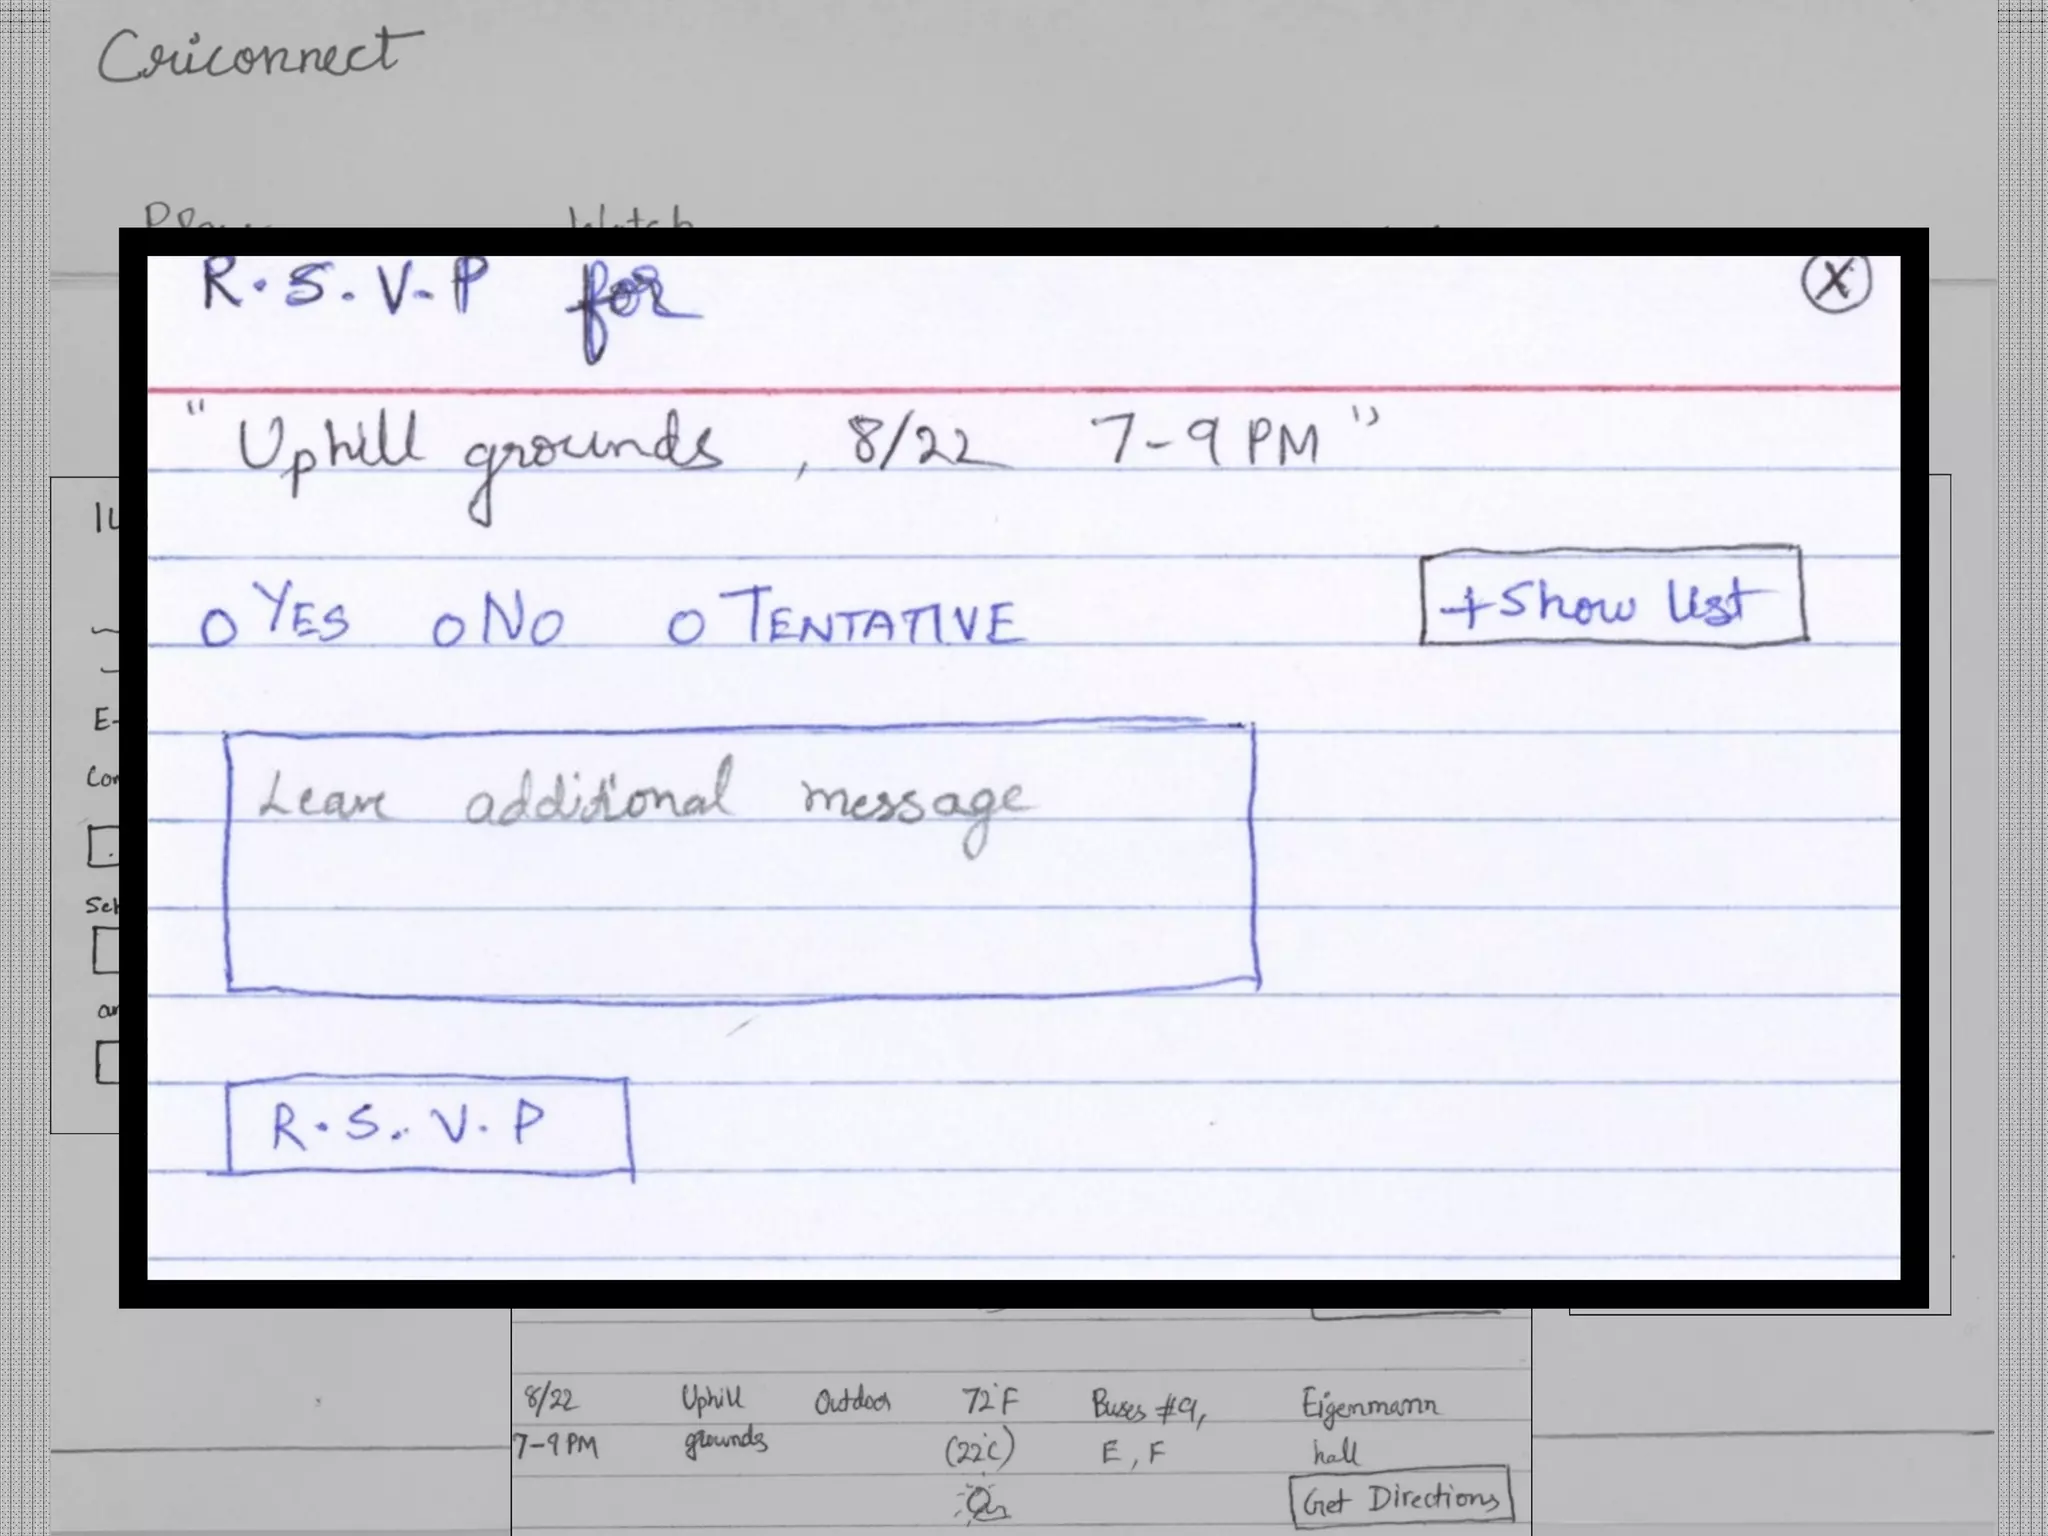 Criconnect
R.S.V.P for
X
"Uphill grounds, 8/22 7-9 PM"
O YES O NO O TENTATIVE
+ Show list
Leave additional message
R.S.V.P
8/22 Uphill Outdoor 72°F Buses #9, Eigenmann
7-9 PM grounds (22°C) E, F hall
Get Directions